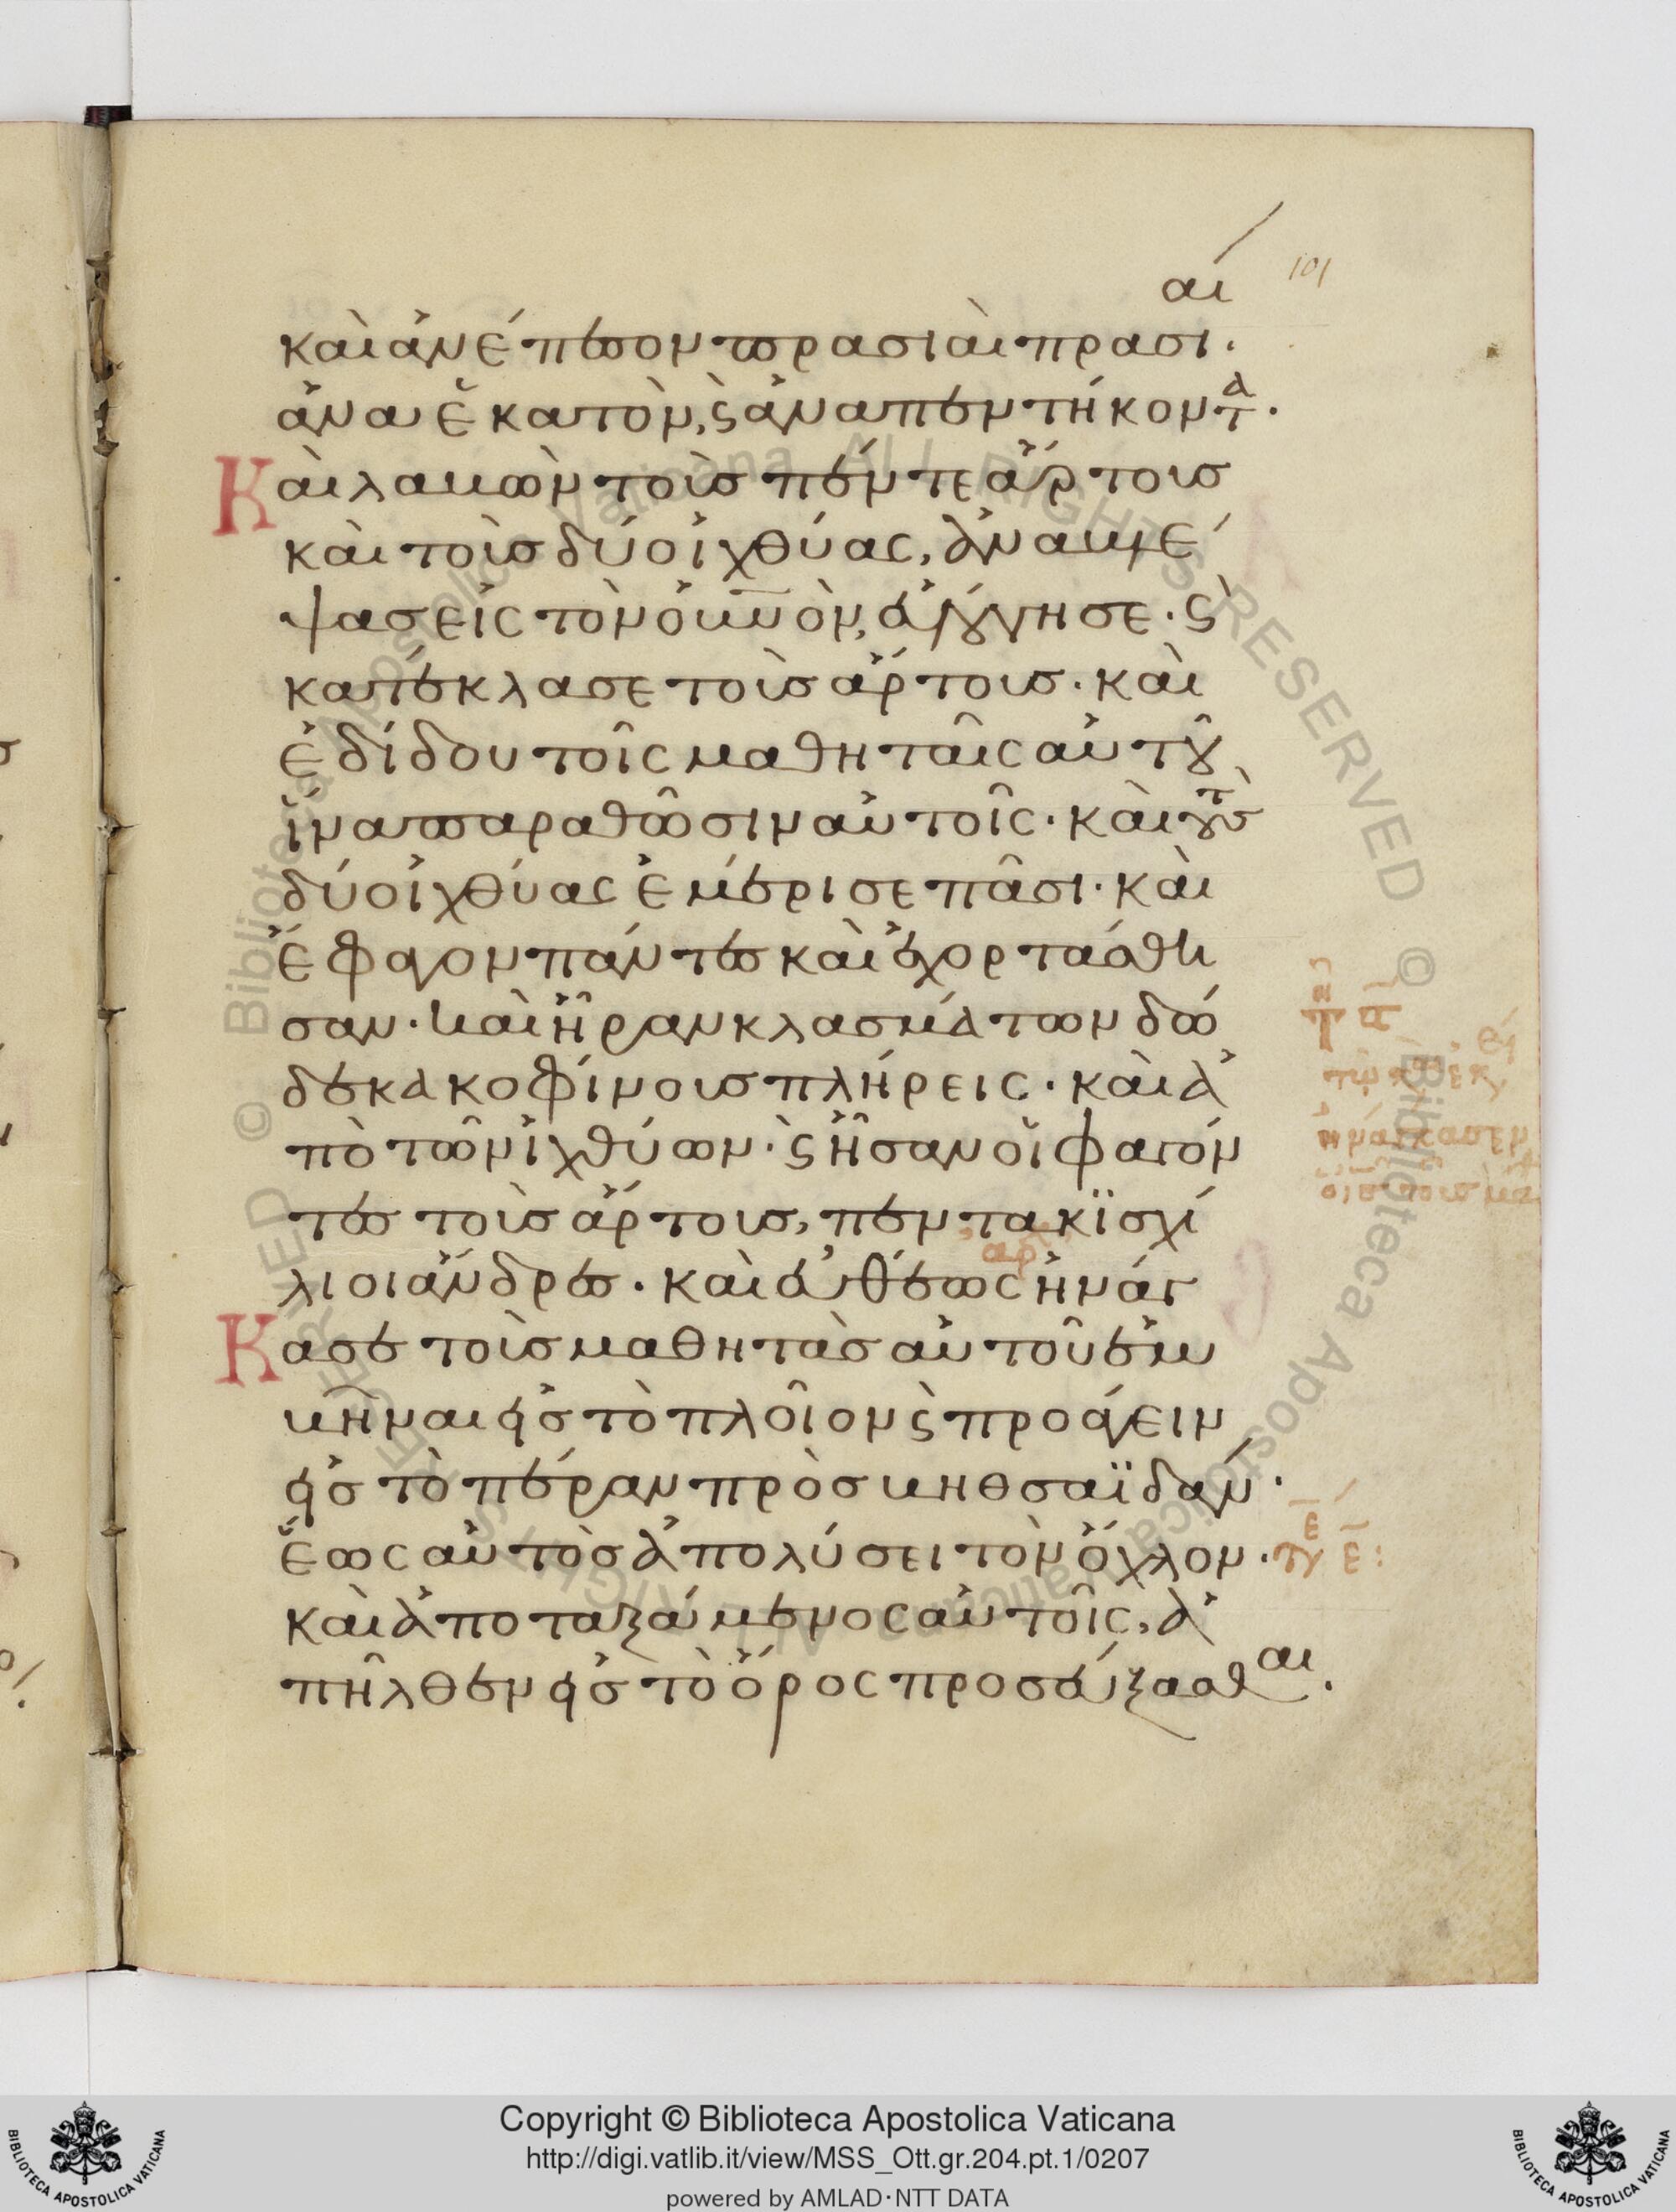 101
καὶ ἀνέπεσον πρασιαὶ πρασιαί·
ἀνα ἑκατὸν, ϛ ἀνα πεντήκοντα·
Καὶ λαβὼν τοὺσ πέντε ἄρτους
καὶ τοὺσ δύο ἰχθύας, ἀναβλέ
ψασ εἰς τὸν οὐνὸν, εὐλόγησε· ϛ
κατέκλασε τοὺσ ἄρτους· καὶ
ἐδίδου τοῖς μαθηταῖς αὐτοῦ
ἵνα παραθῶσιν αὐτοῖς· καὶ τοὺσ
δύο ἰχθύας ἐμέρισε πᾶσι· καὶ
ἔφαγον πάντεσ καὶ ἐχορτάσθη
σαν· καὶ ἦραν κλασμάτων δώ
δεκα κοφίνους πλήρεις· καὶ ἀ
πὸ τῶν ἰχθύων· ϛ ἦσαν οἱ φαγόν
τεσ τοὺσ ἄρτους, πεντακϊσχί
λιοι ἄνδρεσ· καὶ εὐθέως ἠνάγ
Κασε τοὺσ μαθητὰσ αὐτοῦ ἐμ
βῆναι εἰσ τὸ πλοῖον ϛ προάγειν
εἰσ τὸ πέραν πρὸσ βηθσαϊδάν·
ἕως αὐτὸσ ἀπολύσει τὸν ὄχλον·
καὶ ἀποταξάμενος αὐτοῖς, ἀ
πῆλθεν εἰσ τὸ ὄρος προσεύξασθαι·
ἠνάγκασεν
Copyright © Biblioteca Apostolica Vaticana
http://digi.vatlib.it/view/MSS_Ott.gr.204.pt.1/0207
powered by AMLAD·NTT DATA
BIBLIOTECA APOSTOLICA VATICANA
BIBLIOTECA APOSTOLICA VATICANA